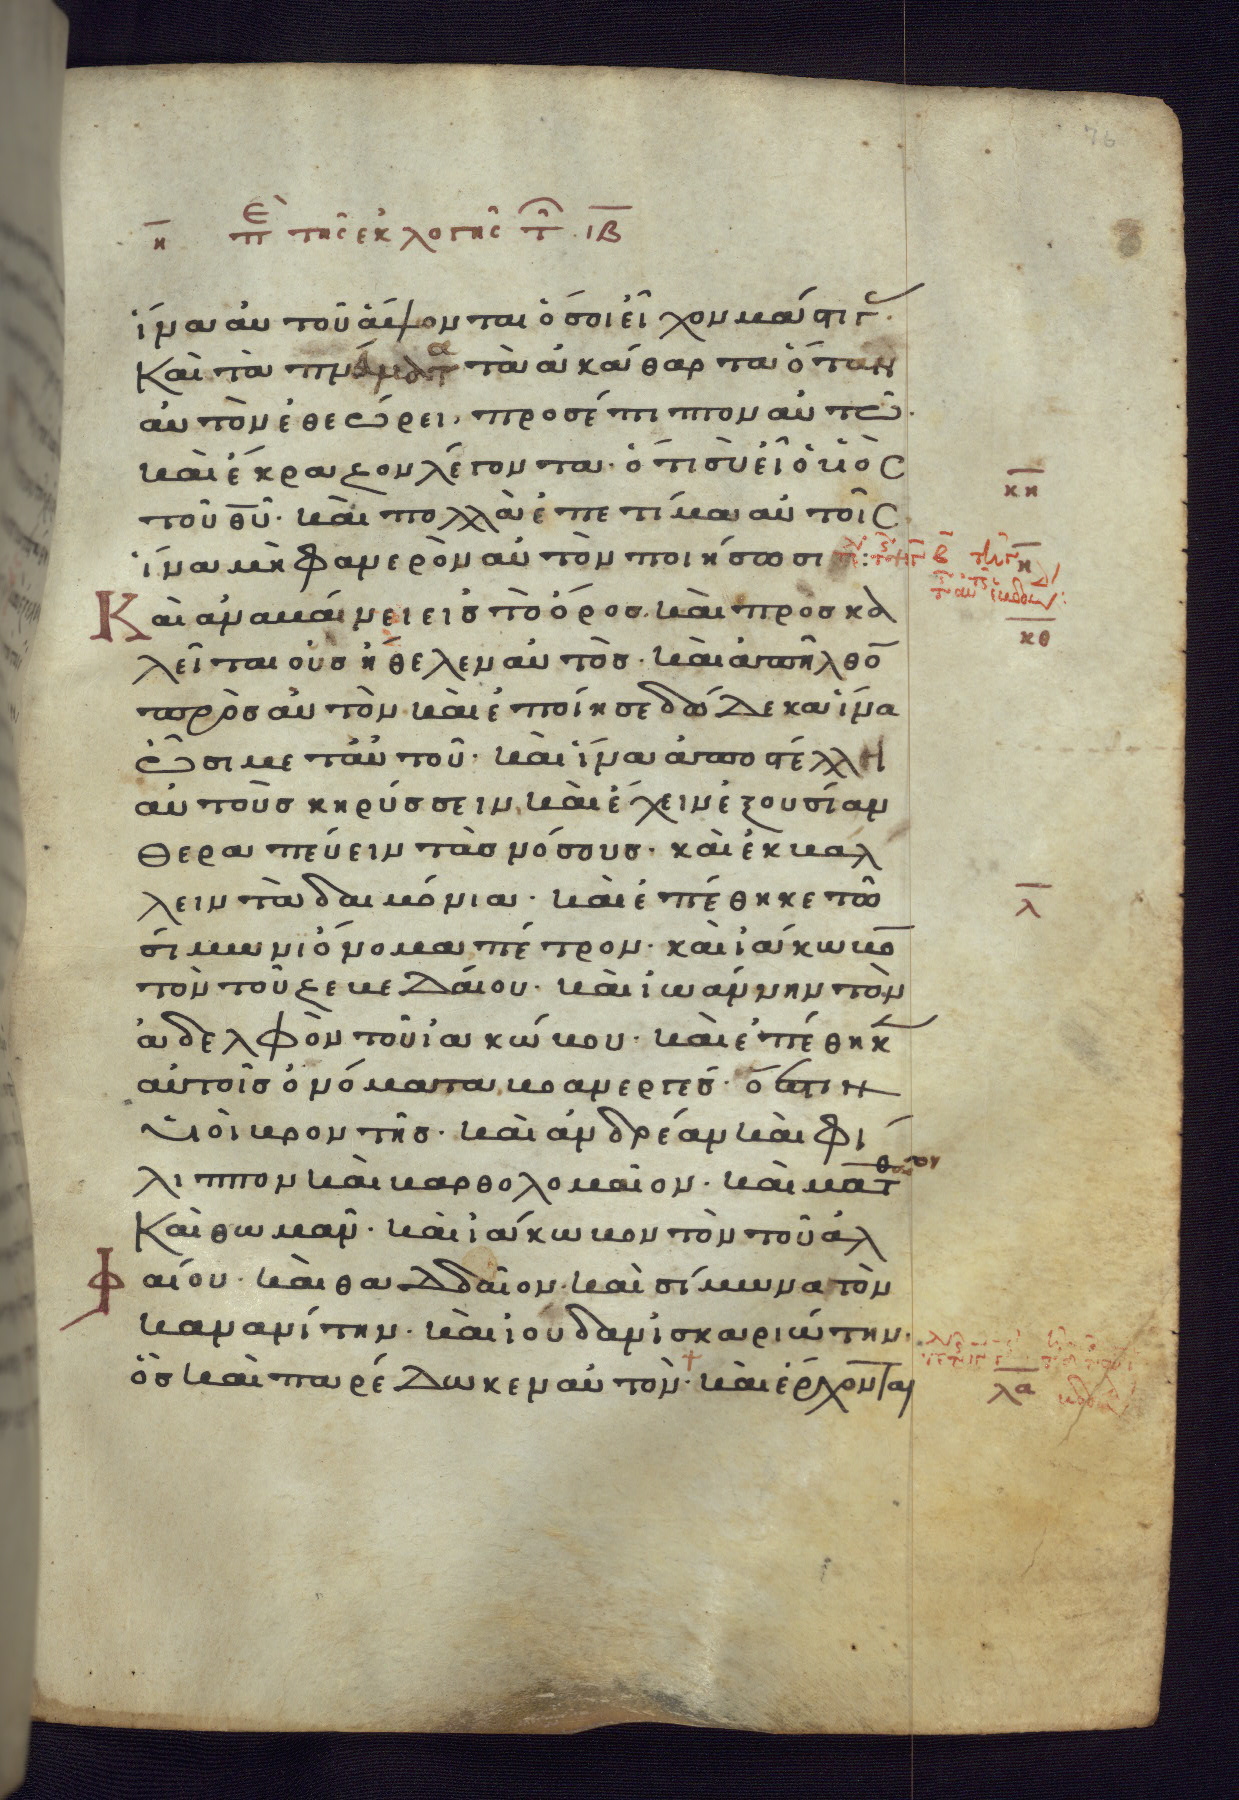 76
η πε τῆς ἐκλογῆς τ ιβ
ἵνα αὐτοῦ ἅψονται ὅσοι εἶχον μάστιγ.
Καὶ τὰ πν̅α τὰ ἀκάθαρτα ὅταν
αὐτὸν ἐθεώρει, προσέπιπτον αὐτῶ.
καὶ ἔκραζον λέγοντα· ὅτι σὺ εἶ ὁ υἱὸς
τοῦ θ̅υ̅· καὶ πολλὰ ἐπετίμα αὐτοῖς
κη
ἵνα μὴ φανερὸν αὐτὸν ποιήσωσι
η
Καὶ ἀναβαίνει εἰς τὸ ὄρος. καὶ προσκα
κθ
λεῖται οὓς ἤθελεν αὐτὸς· καὶ ἀπῆλθο̅
πρὸς αὐτὸν καὶ ἐποίησε δώδεκα ἵνα
ὦσι μετ᾽αὐτοῦ· καὶ ἵνα ἀποστέλλη
αὐτοὺς κηρύσσειν καὶ ἔχειν ἐξουσίαν
θεραπεύειν τὰς νόσους· καὶ ἐκβαλ
λειν τὰ δαιμόνια· καὶ ἐπέθηκε τῶ
λ
σίμωνι ὄνομα πέτρον· καὶ ἰάκωβο̅
τὸν τοῦ ζεβεδαίου· καὶ ἰωάννην τὸν
ἀδελφὸν τοῦ ἰακώβου· καὶ ἐπέθηκ
αὐτοῖς ὀνόματα βοανεργές· ὅ ἐστιν
υἱὸι βροντῆς· καὶ ἀνδρέαν καὶ φί
λιππον καὶ βαρθολομαῖον· καὶ ματθαῖον
Καὶ θωμᾶν· καὶ ἰάκωβον τὸν τοῦ ἀλ
φαίου· καὶ θαδδαῖον· καὶ σίμωνα τὸν
κανανίτην· καὶ ἰούδαν ἰσκαριώτην·
ὃς καὶ παρέδωκεν αὐτὸν· καὶ ἔρχονται
λα